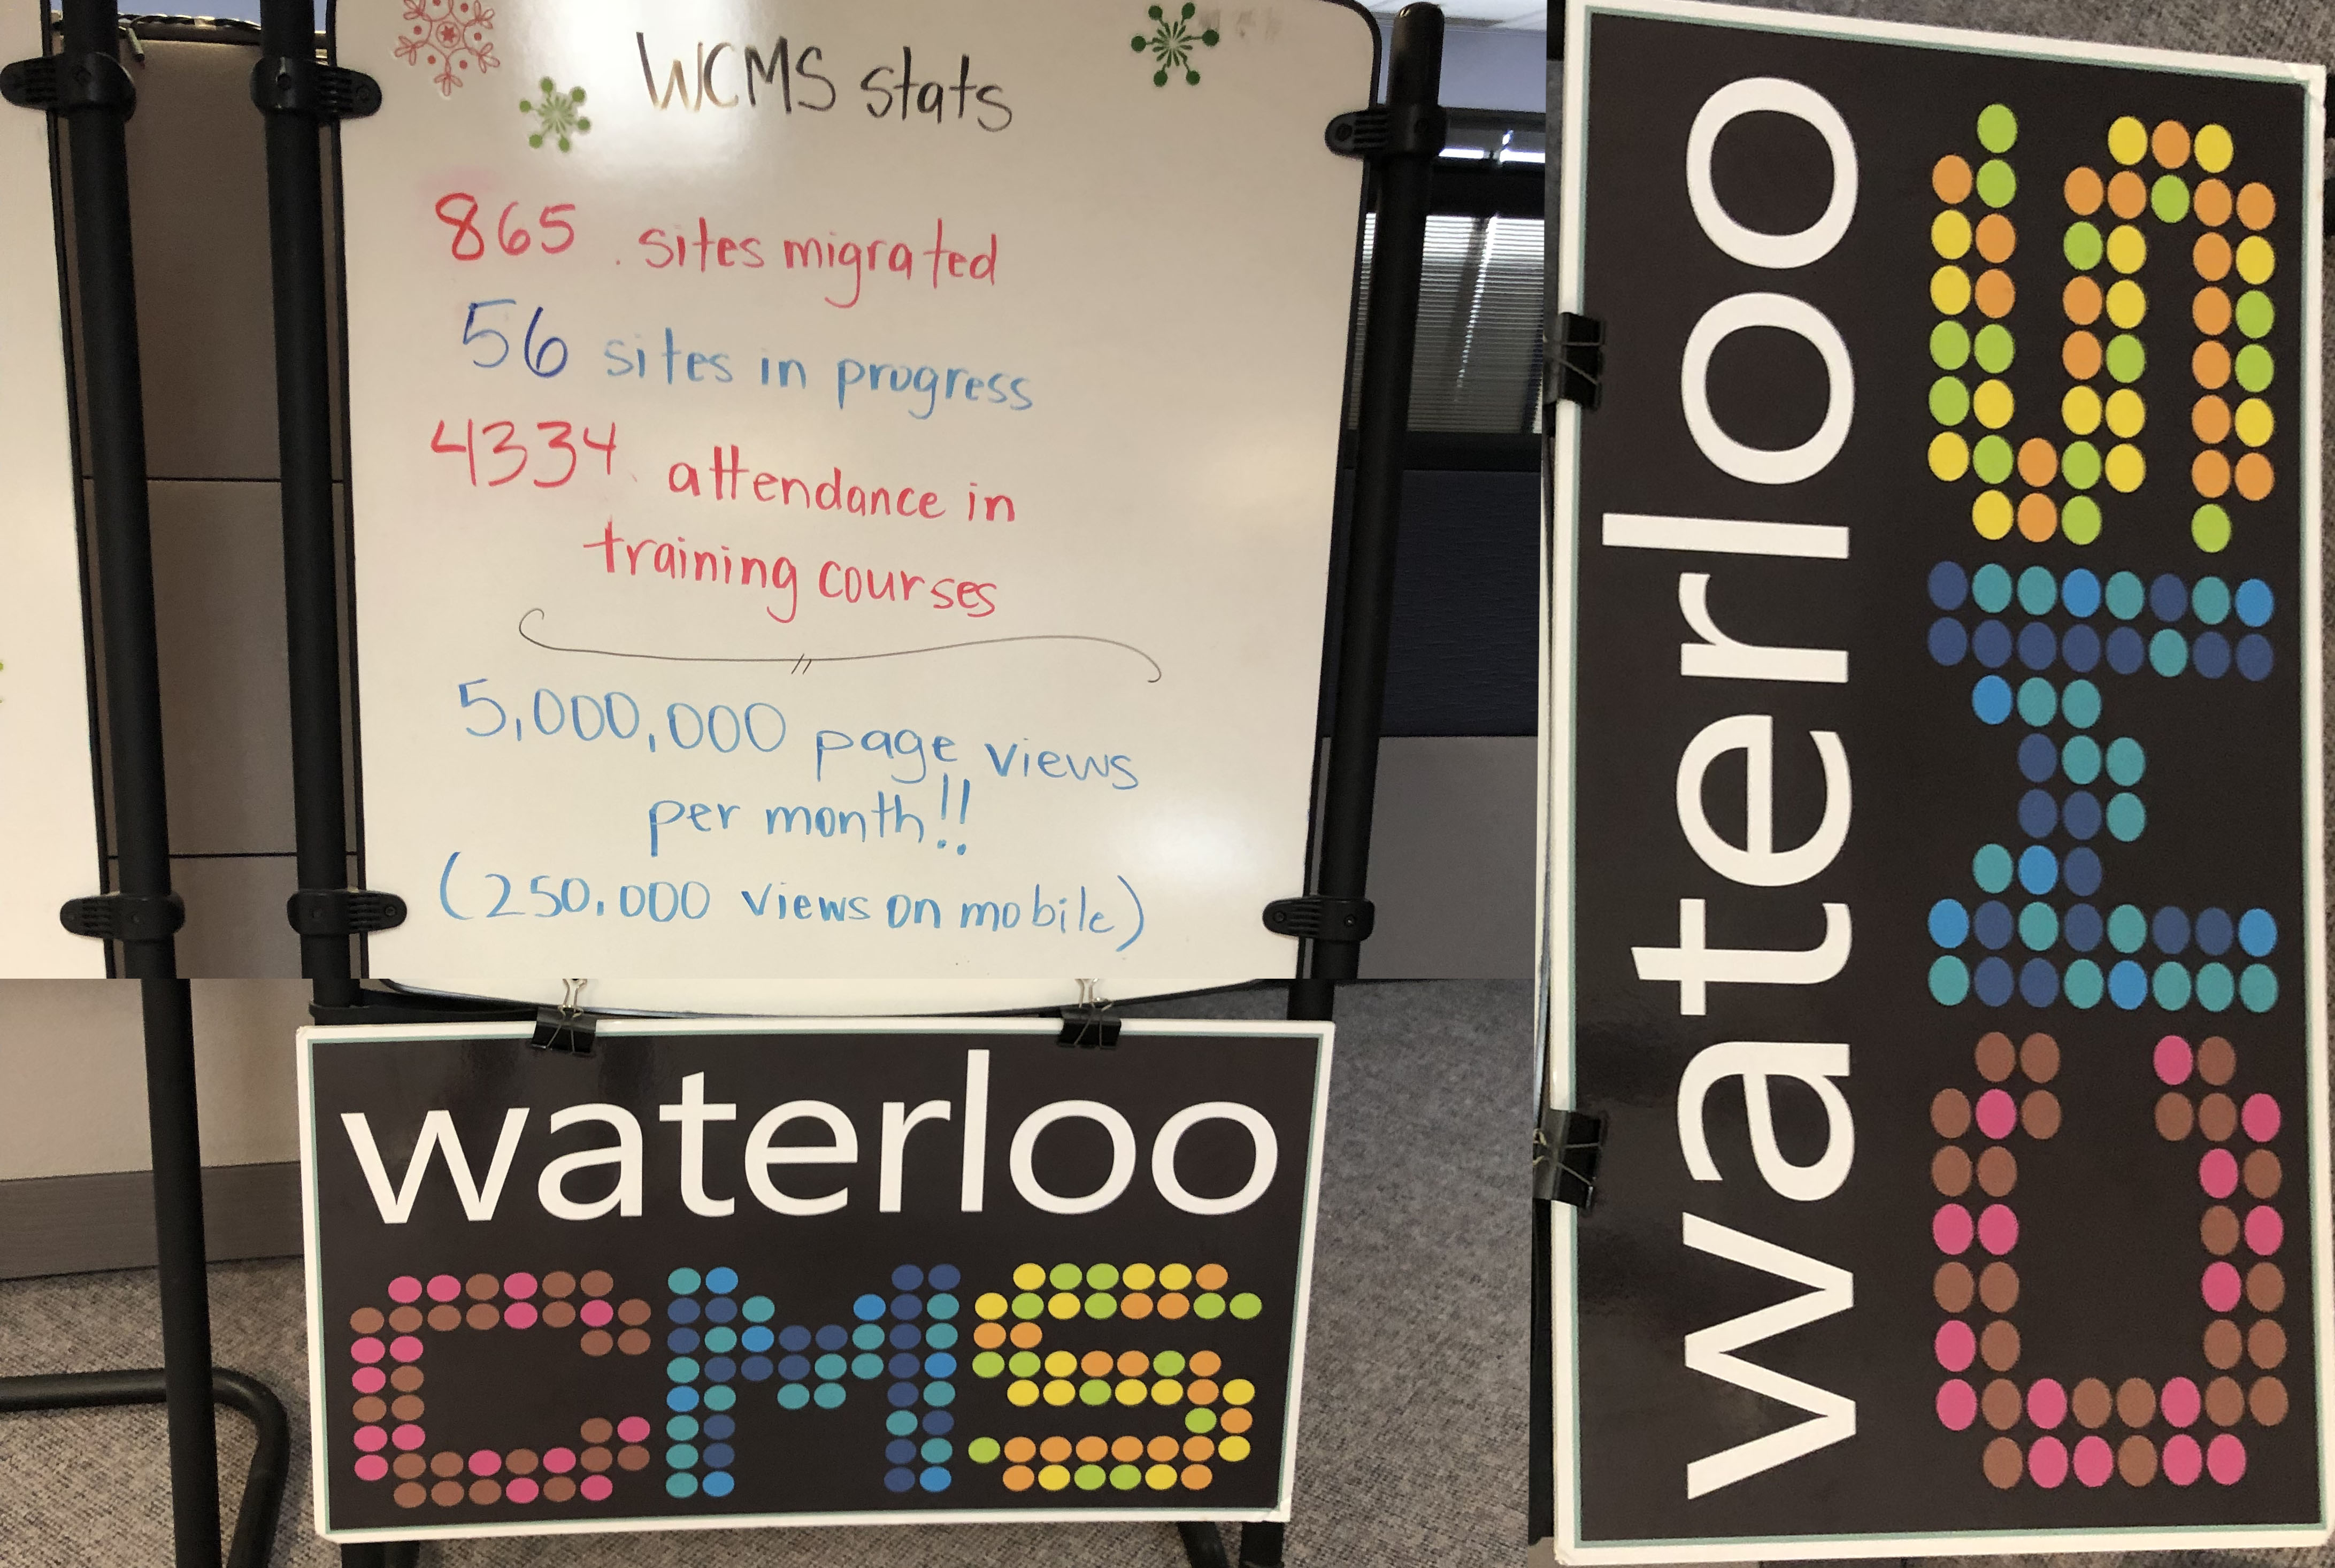 WCMS stats
865 sites migrated
56 sites in progress
4334 attendance in
training courses
5,000,000 page views
per month!!
(250,000 views on mobile)
waterloo
CMS
waterloo
CMS